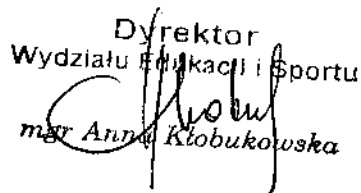 Dyrektor
Wydziału Edukacji i Sportu
mgr Anna Kłobukowska